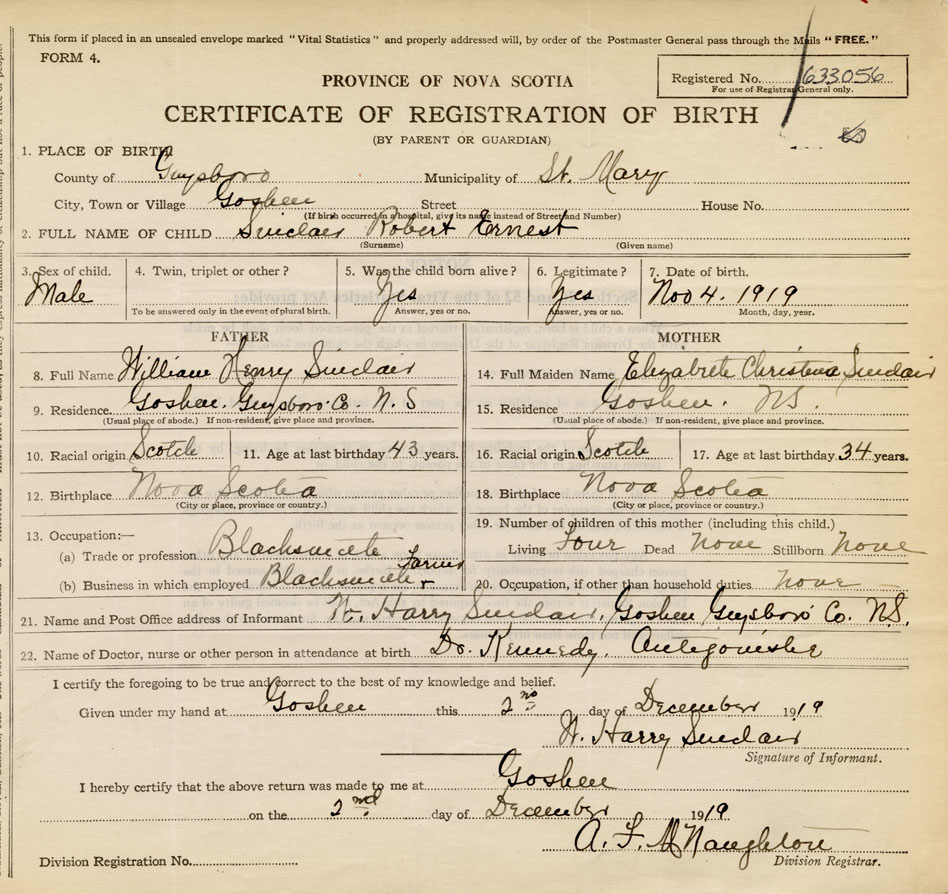 This form if placed in an unsealed envelope marked "Vital Statistics" and properly addressed will, by order of the Postmaster General pass through the Mails "FREE."
FORM 4.
PROVINCE OF NOVA SCOTIA
Registered No. 633056
For use of Registrar General only.
CERTIFICATE OF REGISTRATION OF BIRTH
(BY PARENT OR GUARDIAN)
1. PLACE OF BIRTH
County of Guysboro Municipality of St. Mary
City, Town or Village Goshen Street House No.
(If birth occurred in a hospital, give its name instead of Street and Number)
2. FULL NAME OF CHILD Sinclair Robert Ernest
(Surname) (Given name)
3. Sex of child. 4. Twin, triplet or other? 5. Was the child born alive? 6. Legitimate? 7. Date of birth.
Male Yes Yes Nov 4. 1919
To be answered only in the event of plural birth. Answer, yes or no. Answer, yes or no. Month, day, year.
FATHER MOTHER
8. Full Name William Henry Sinclair 14. Full Maiden Name Elizabeth Christena Sinclair
9. Residence. Goshen. Guysboro Co N.S 15. Residence Goshen. N.S.
(Usual place of abode.) If non-resident, give place and province. (Usual place of abode.) If non-resident, give place and province.
10. Racial origin Scotch 11. Age at last birthday 43 years. 16. Racial origin Scotch 17. Age at last birthday 34 years.
12. Birthplace Nova Scotia 18. Birthplace Nova Scotia
(City or place, province or country.) (City or place, province or country.)
13. Occupation:— 19. Number of children of this mother (including this child.)
(a) Trade or profession Blacksmith Living Four Dead None Stillborn None
(b) Business in which employed Blacksmith + Farming 20. Occupation, if other than household duties none
21. Name and Post Office address of Informant W. Harry Sinclair, Goshen Guysboro Co. N.S.
22. Name of Doctor, nurse or other person in attendance at birth Dr. Kennedy. Antigonishe
I certify the foregoing to be true and correct to the best of my knowledge and belief.
Given under my hand at Goshen this 2nd day of December 1919
W. Harry Sinclair
Signature of Informant.
I hereby certify that the above return was made to me at Goshen
on the 2nd day of December 1919
A. F. McNaughton
Division Registration No. Division Registrar.